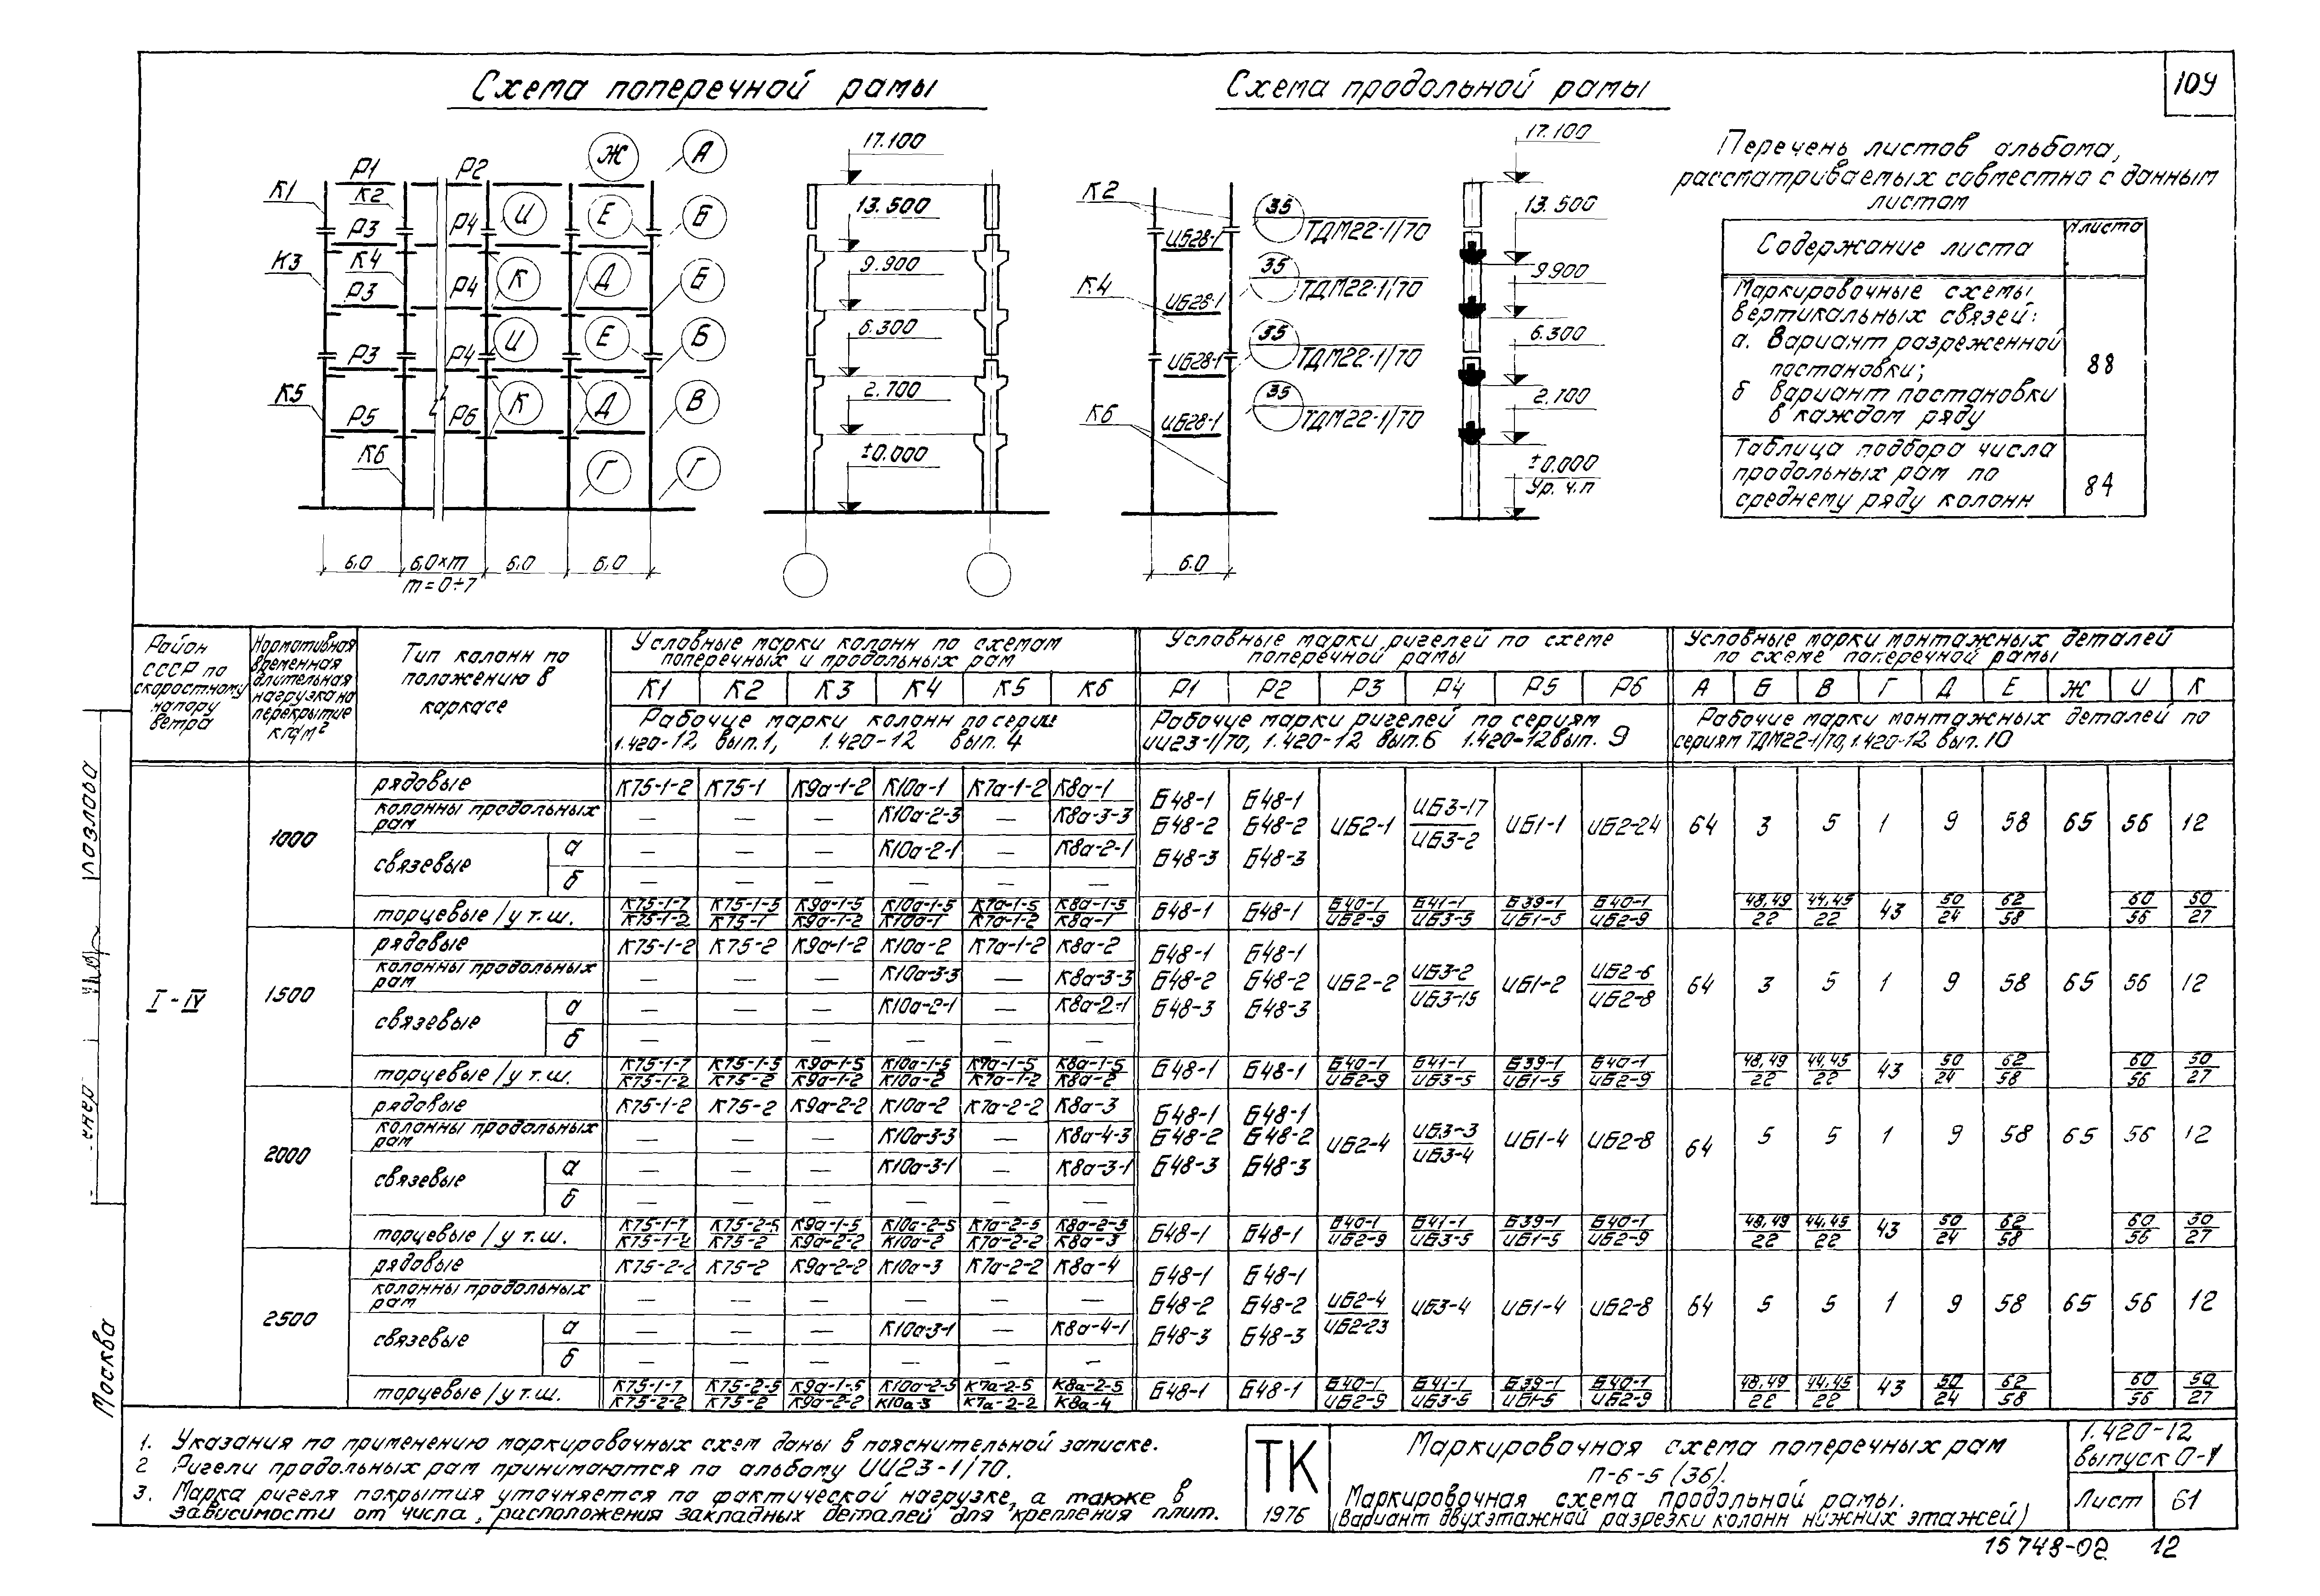 109
Схема поперечной рамы
Схема продольной рамы
Р1 Р2 Ж А
К1 К2 И Е Б
Р3 Р4
К3 К4 К Д Б
Р3 Р4
Р3 Р4 И Е Б
К5 Р5 Р6 К Д В
К6 Г Г
6.0 6,0×m 6.0 6,0
m=0÷7
17.100
13.500
9.900
6.300
2.700
±0.000
К2 35 ТДМ22-1/70
ИБ28-1
К4 35 ТДМ22-1/70
ИБ28-1
35 ТДМ22-1/70
ИБ28-1
К6 35 ТДМ22-1/70
ИБ28-1
6.0
17.100
13.500
9.900
6.300
2.700
±0.000
Ур. ч.п
Перечень листов альбома,
рассматриваемых совместно с данным
листом
Содержание листа N листа
Маркировочные схемы
вертикальных связей:
а. Вариант разреженной
постановки;
б вариант постановки
в каждом ряду
88
Таблица подбора числа
продольных рам по
среднему ряду колонн
84
Район СССР по скоростному напору ветра
Нормативная временная длительная нагрузка на перекрытие кг/м²
Тип колонн по положению в каркасе
Условные марки колонн по схемам
поперечных и продольных рам
К1 К2 К3 К4 К5 К6
Рабочие марки колонн по серии
1.420-12, вып.1, 1.420-12 вып. 4
Условные марки ригелей по схеме
поперечной рамы
Р1 Р2 Р3 Р4 Р5 Р6
Рабочие марки ригелей по сериям
ИИ23-1/70, 1.420-12 вып.6 1.420-12 вып. 9
Условные марки монтажных деталей
по схеме поперечной рамы
А Б В Г Д Е Ж И К
Рабочие марки монтажных деталей по
сериям ТДМ22-1/70, 1.420-12 вып.10
I-IV
1000
рядовые К75-1-2 К75-1 К9а-1-2 К10а-1 К7а-1-2 К8а-1
колонны продольных рам — — — К10а-2-3 — К8а-3-3
связевые а — — — К10а-2-1 — К8а-2-1
б — — — — — —
Б48-1 Б48-2 Б48-3 Б48-1 Б48-2 Б48-3 ИБ2-1 ИБ3-17/ИБ3-2 ИБ1-1 ИБ2-24 64 3 5 1 9 58 65 56 12
торцевые/у т.ш. К75-1-7/К75-1-2 К75-1-5/К75-1 К9а-1-5/К9а-1-2 К10а-1-5/К10а-1 К7а-1-5/К7а-1-2 К8а-1-5/К8а-1 Б48-1 Б48-1 Б40-1/ИБ2-9 Б41-1/ИБ3-5 Б39-1/ИБ1-5 Б40-1/ИБ2-9 48,49/22 44,45/22 43 50/24 62/58 60/56 50/27
1500
рядовые К75-1-2 К75-2 К9а-1-2 К10а-2 К7а-1-2 К8а-2
колонны продольных рам — — — К10а-3-3 — К8а-3-3
связевые а — — — К10а-2-1 — К8а-2-1
б — — — — — —
Б48-1 Б48-2 Б48-3 Б48-1 Б48-2 Б48-3 ИБ2-2 ИБ3-2/ИБ3-15 ИБ1-2 ИБ2-6/ИБ2-8 64 3 5 1 9 58 65 56 12
торцевые/у т.ш. К75-1-7/К75-1-2 К75-1-5/К75-2 К9а-1-5/К9а-1-2 К10а-1-5/К10а-2 К7а-1-5/К7а-1-2 К8а-1-5/К8а-2 Б48-1 Б48-1 Б40-1/ИБ2-9 Б41-1/ИБ3-5 Б39-1/ИБ1-5 Б40-1/ИБ2-9 48,49/22 44,45/22 43 50/24 62/58 60/56 50/27
2000
рядовые К75-1-2 К75-2 К9а-2-2 К10а-2 К7а-2-2 К8а-3
колонны продольных рам — — — К10а-3-3 — К8а-4-3
связевые а — — — К10а-3-1 — К8а-3-1
б — — — — — —
Б48-1 Б48-2 Б48-3 Б48-1 Б48-2 Б48-3 ИБ2-4 ИБ3-3/ИБ3-4 ИБ1-4 ИБ2-8 64 5 5 1 9 58 65 56 12
торцевые/у т.ш. К75-1-7/К75-1-2 К75-2-5/К75-2 К9а-1-5/К9а-2-2 К10а-2-5/К10а-2 К7а-2-5/К7а-2-2 К8а-2-5/К8а-3 Б48-1 Б48-1 Б40-1/ИБ2-9 Б41-1/ИБ3-5 Б39-1/ИБ1-5 Б40-1/ИБ2-9 48,49/22 44,45/22 43 50/24 62/58 60/56 50/27
2500
рядовые К75-2-2 К75-2 К9а-2-2 К10а-3 К7а-2-2 К8а-4
колонны продольных рам — — — — — —
связевые а — — — К10а-3-1 — К8а-4-1
б — — — — — —
Б48-1 Б48-2 Б48-3 Б48-1 Б48-2 Б48-3 ИБ2-4/ИБ2-23 ИБ3-4 ИБ1-4 ИБ2-8 64 5 5 1 9 58 65 56 12
торцевые/у т.ш. К75-1-7/К75-2-2 К75-2-5/К75-2 К9а-1-5/К9а-2-2 К10а-2-5/К10а-3 К7а-2-5/К7а-2-2 К8а-2-5/К8а-4 Б48-1 Б48-1 Б40-1/ИБ2-9 Б41-1/ИБ3-5 Б39-1/ИБ1-5 Б40-1/ИБ2-9 48,49/22 44,45/22 43 50/24 62/58 60/56 50/27
1. Указания по применению маркировочных схем даны в пояснительной записке.
2 Ригели продольных рам принимаются по альбому ИИ23-1/70.
3. Марка ригеля покрытия уточняется по фактической нагрузке, а также в
зависимости от числа, расположения закладных деталей для крепления плит.
ТК
1976
Маркировочная схема поперечных рам
П-6-5 (36).
Маркировочная схема продольной рамы.
(Вариант двухэтажной разрезки колонн нижних этажей)
1.420-12
выпуск 0-1
Лист 61
15748-02 12
Москва